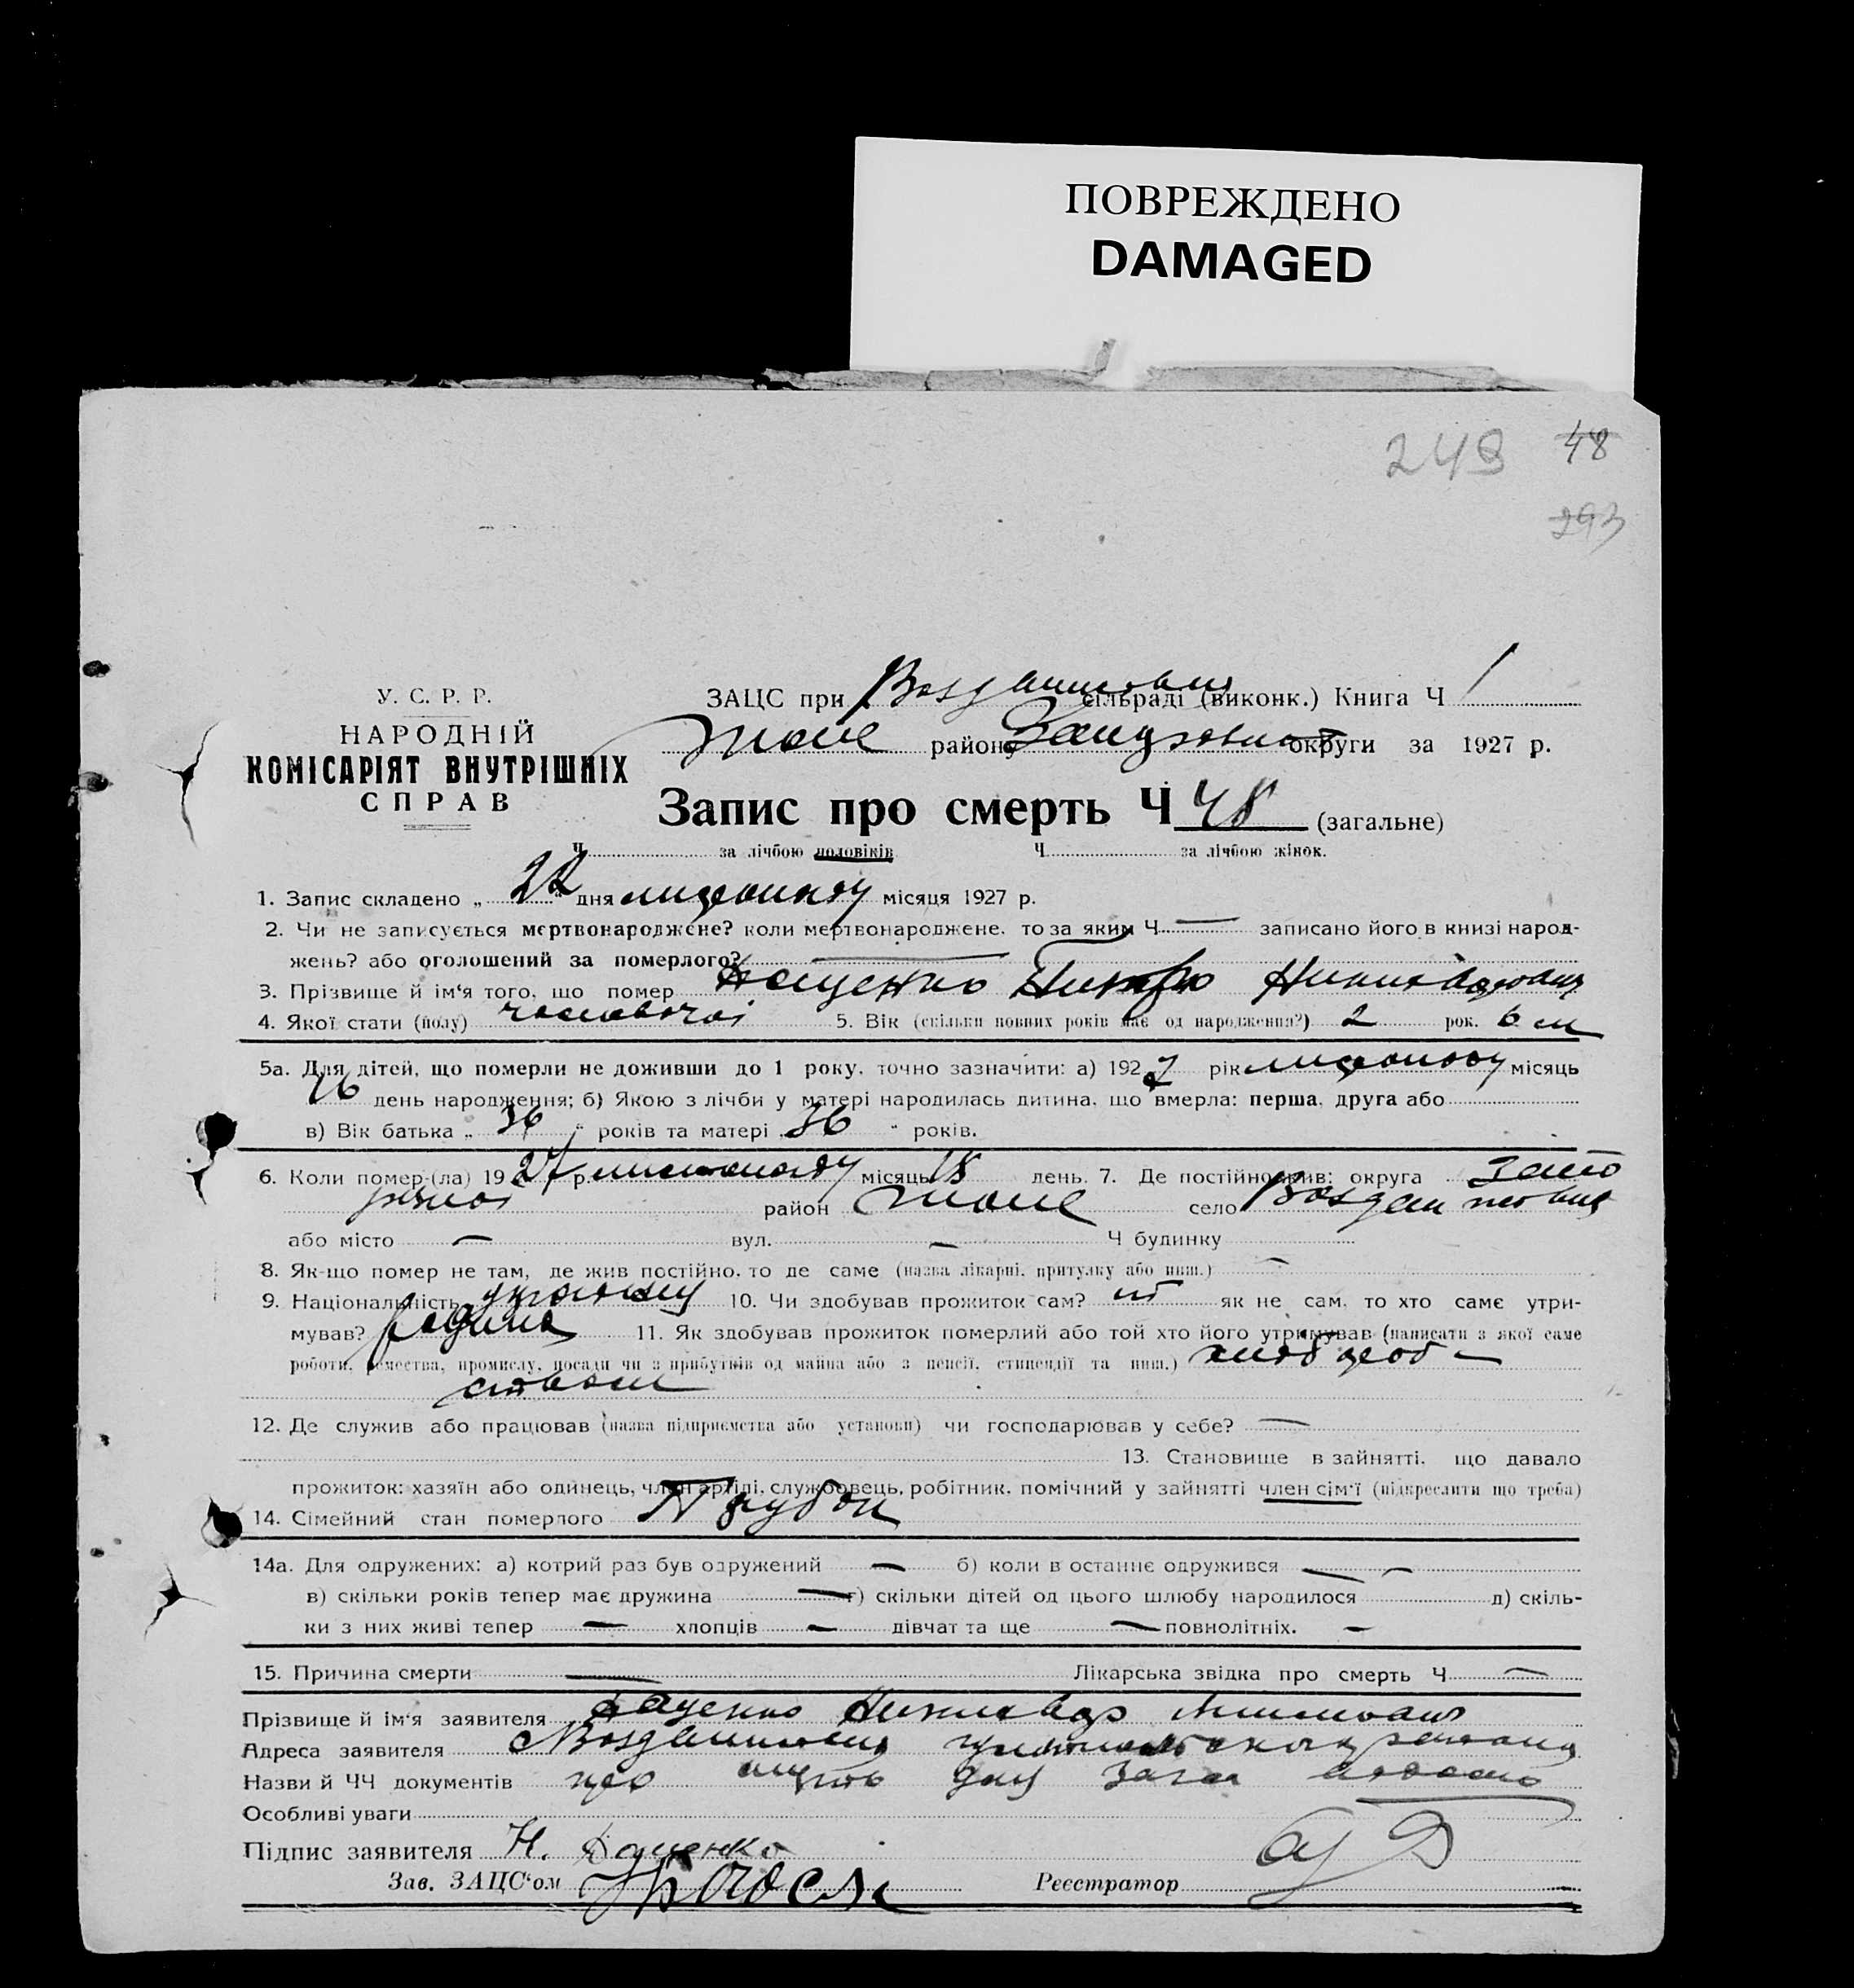 ПОВРЕЖДЕНО
DAMAGED
249 48
293
У. С. Р. Р.
НАРОДНІЙ
КОМІСАРІЯТ ВНУТРІШНІХ
СПРАВ
ЗАЦС при сільраді (виконк.) Книга Ч 1
району округи за 1927 р.
Запис про смерть Ч 48 (загальне)
Ч за лічбою чоловіків Ч за лічбою жінок.
1. Запис складено „ 22 " дня листопаду місяця 1927 р.
2. Чи не записується мертвонароджене? коли мертвонароджене, то за яким Ч — записано його в книзі народ-
жень? або оголошений за померлого? —
3. Прізвище й ім'я того, що помер Даценко Петро
4. Якої стати (полу) чоловічої 5. Вік (скільки повних років має од народження?) 2 рок. 6 м
5а. Для дітей, що померли не доживши до 1 року, точно зазначити: а) 192 рік місяць
16 день народження; б) Якою з лічби у матері народилась дитина, що вмерла: перша, друга або
в) Вік батька „ 36 " років та матері „ 36 " років.
6. Коли помер-(ла) 19 27 р. листопаду місяць 18 день. 7. Де постійно жив: округа Запо
різької район село
або місто — вул. — Ч будинку
8. Як-що помер не там, де жив постійно, то де саме (назва лікарні, притулку або инш.) —
9. Національність 10. Чи здобував прожиток сам? ні як не сам, то хто саме утри-
мував? родина 11. Як здобував прожиток померлий або той хто його утримував (написати з якої саме
роботи, ремества, промислу, посади чи з прибутків од майна або з пенсії, стипендії та инш.) хлібороб-
ством
12. Де служив або працював (назва підприємства або установи) чи господарював у себе? —
13. Становище в зайнятті, що давало
прожиток: хазяїн або одинець, член артілі, службовець, робітник, помічний у зайнятті член сім'ї (підкреслити що треба)
14. Сімейний стан померлого
14а. Для одружених: а) котрий раз був одружений — б) коли в останнє одружився —
в) скільки років тепер має дружина — г) скільки дітей од цього шлюбу народилося д) скіль-
ки з них живі тепер — хлопців — дівчат та ще — повнолітніх. —
15. Причина смерти — Лікарська звідка про смерть Ч —
Прізвище й ім'я заявителя Даценко
Адреса заявителя
Назви й ЧЧ документів
Особливі уваги
Підпис заявителя Н. Даценко
Зав. ЗАЦС'ом Реєстратор